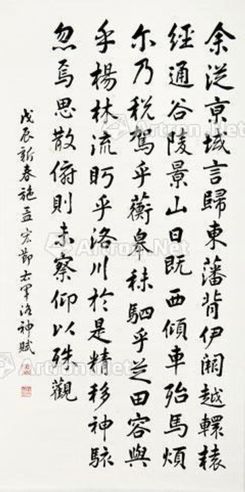 余从京域言歸東藩背伊闕越轘轅
經通谷陵景山日既西傾車殆馬煩
尔乃稅駕乎蘅皋秣駟乎芝田容與
乎楊林流眄乎洛川於是精移神駭
忽焉思散俯則未察仰以殊觀
戊辰新春施孟宏節士軍洛神賦